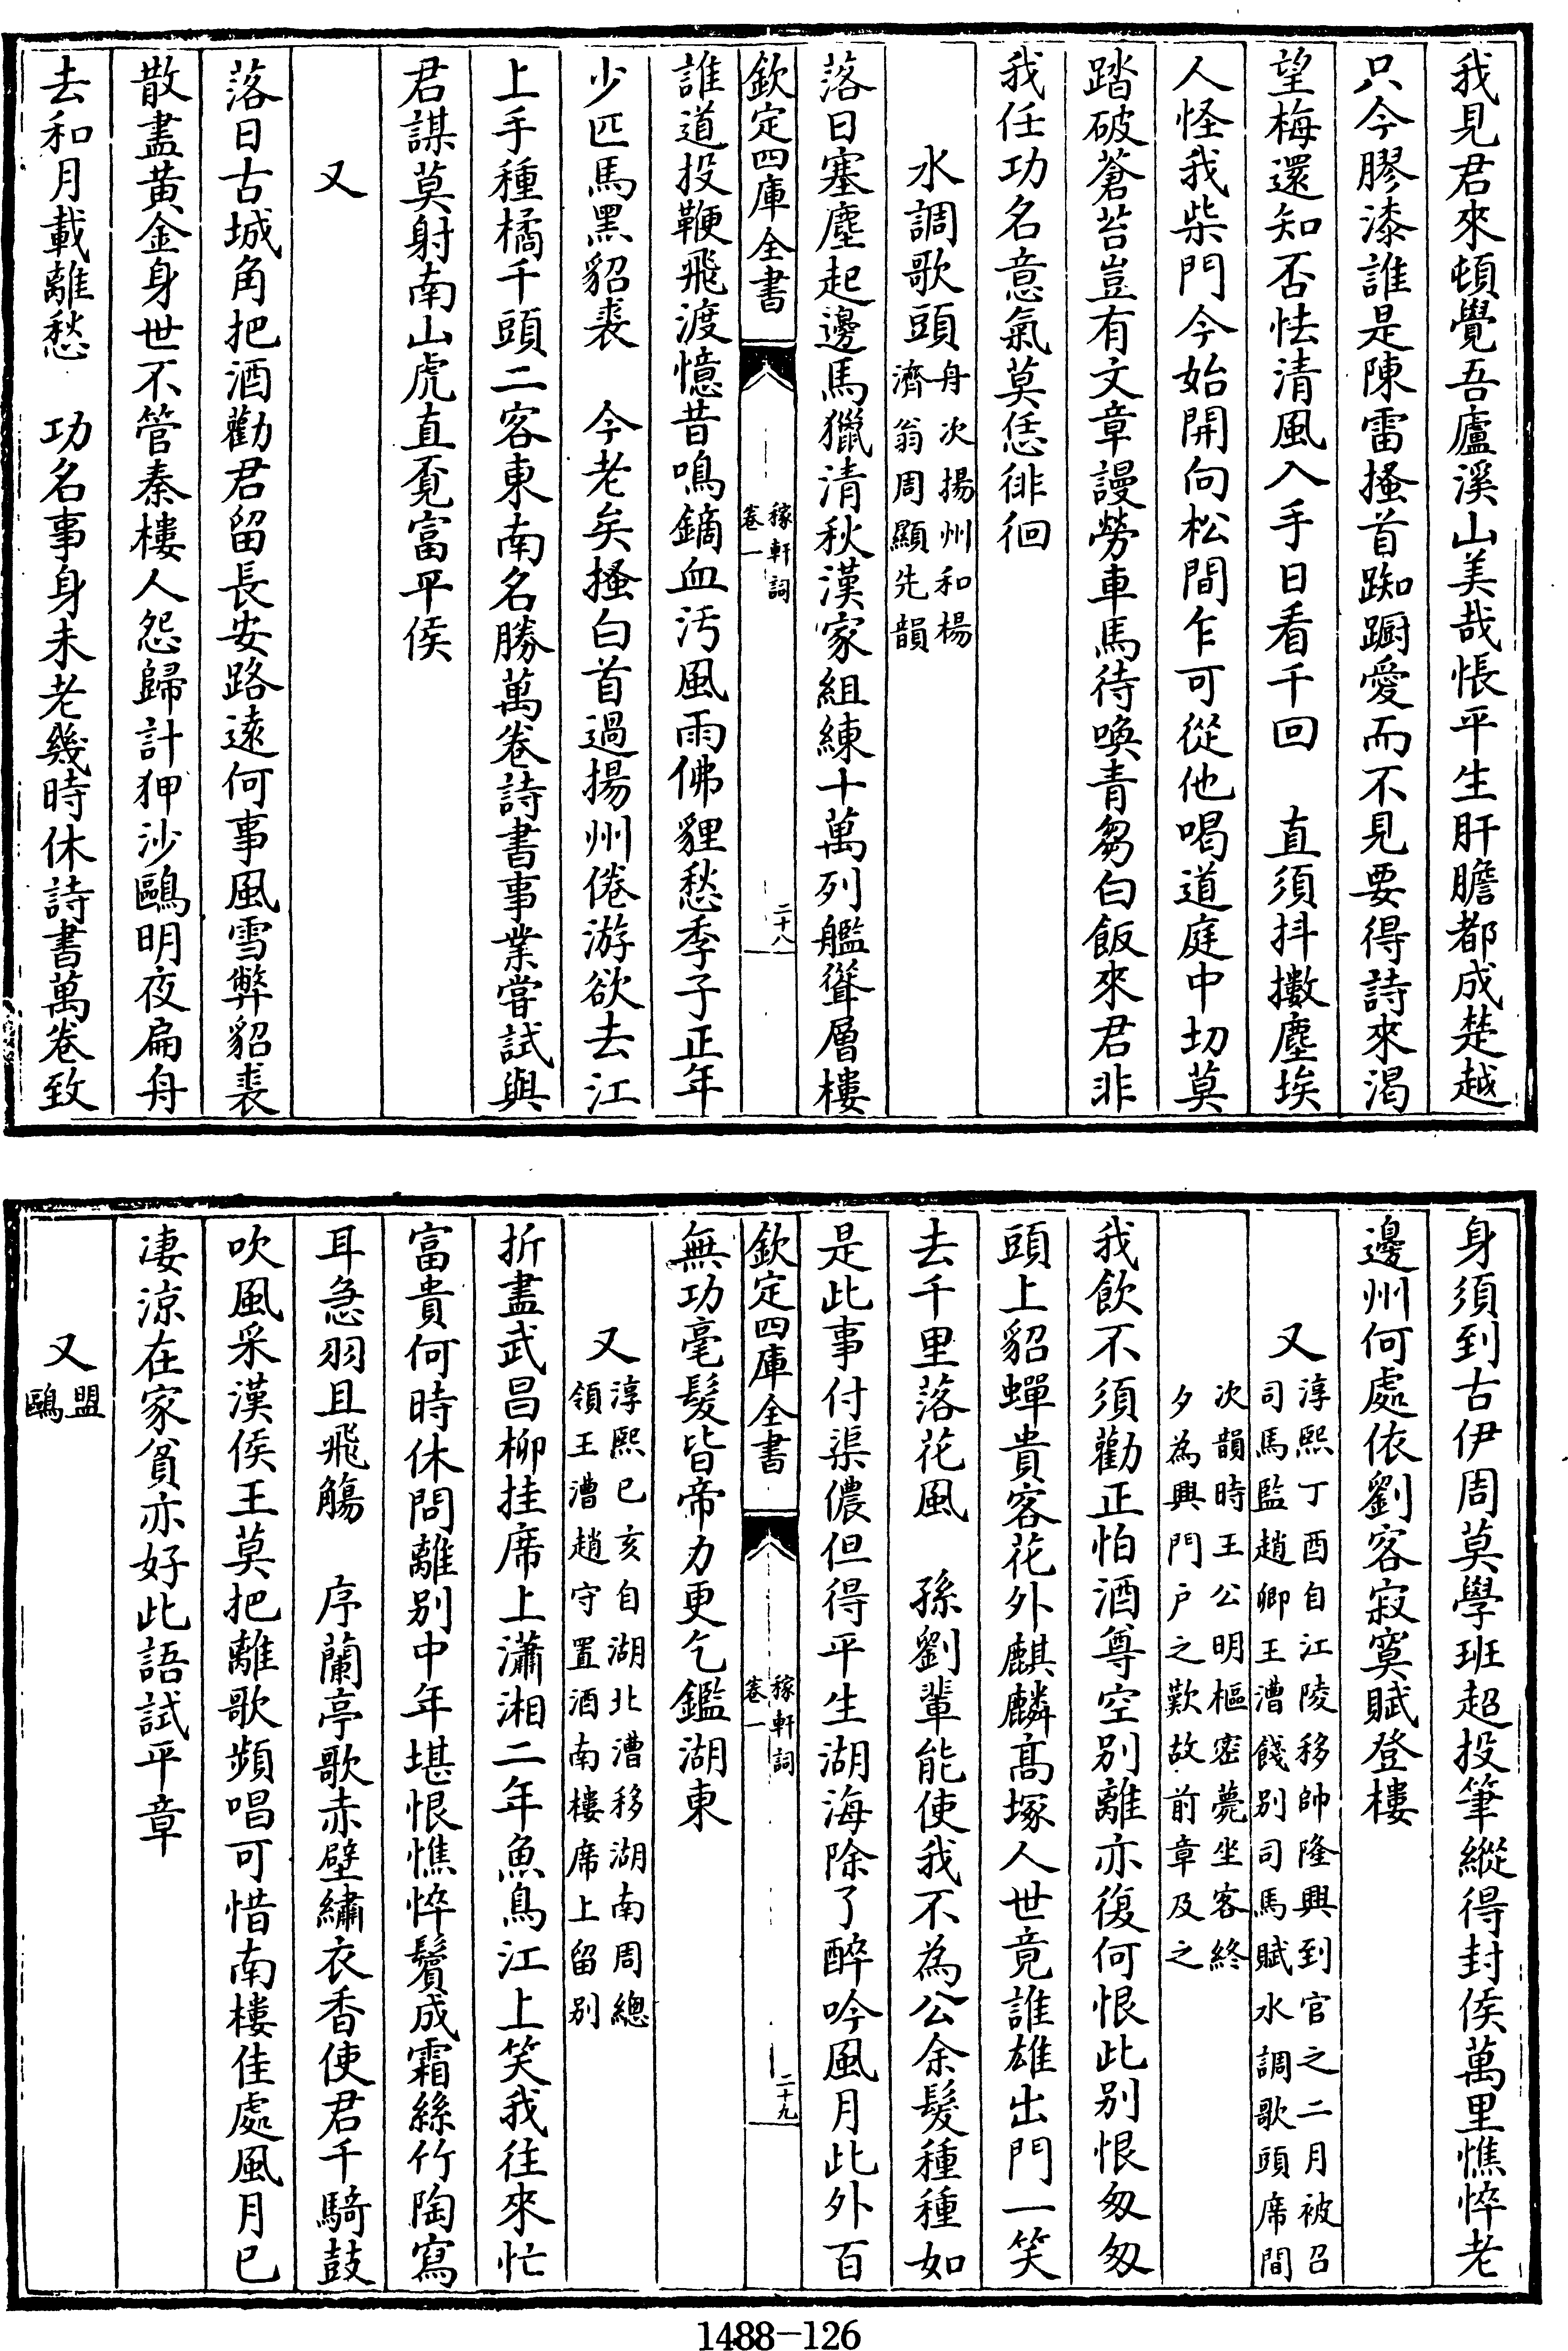 我見君來頓覺吾廬溪山美哉悵平生肝膽都成楚越
只今膠漆誰是陳雷搔首踟躕愛而不見要得詩來渴
望梅還知否怯清風入手日看千回　直須抖擻塵埃
人怪我柴門今始開向松間乍可從他喝道庭中切莫
踏破蒼苔豈有文章謾勞車馬待喚青芻白飯來君非
我任功名意氣莫恁徘徊
水調歌頭
舟次揚州和楊
濟翁周顯先韻
落日塞塵起邊馬獵清秋漢家組練十萬列艦聳層樓
欽定四庫全書
稼軒詞
卷一
二十八
誰道投鞭飛渡憶昔鳴鏑血汚風雨佛貍愁季子正年
少匹馬黑貂裘　今老矣搔白首過揚州倦游欲去江
上手種橘千頭二客東南名勝萬卷詩書事業嘗試與
君謀莫射南山虎直覓富平侯
又
落日古城角把酒勸君留長安路遠何事風雪弊貂裘
散盡黃金身世不管秦樓人怨歸計狎沙鷗明夜扁舟
去和月載離愁　功名事身未老幾時休詩書萬卷致
身須到古伊周莫學班超投筆縱得封侯萬里憔悴老
邊州何處依劉客寂寞賦登樓
又
淳熙丁酉自江陵移帥隆興到官之二月被召
司馬監趙卿王漕餞別司馬賦水調歌頭席間
次韻時王公明樞密薨坐客終
夕為興門戶之歎故前章及之
我飲不須勸正怕酒尊空別離亦復何恨此別恨匆匆
頭上貂蟬貴客花外麒麟高塚人世竟誰雄出門一笑
去千里落花風　孫劉輩能使我不為公余髮種種如
是此事付渠儂但得平生湖海除了醉吟風月此外百
欽定四庫全書
稼軒詞
卷一
二十九
無功毫髮皆帝力更乞鑑湖東
又
淳熙已亥自湖北漕移湖南周總
領王漕趙守置酒南樓席上留別
折盡武昌柳挂席上瀟湘二年魚鳥江上笑我往來忙
富貴何時休問離別中年堪恨憔悴鬢成霜絲竹陶寫
耳急羽且飛觴　序蘭亭歌赤壁繡衣香使君千騎鼓
吹風采漢侯王莫把離歌頻唱可惜南樓佳處風月已
淒涼在家貧亦好此語試平章
又
盟
鷗
1488-126